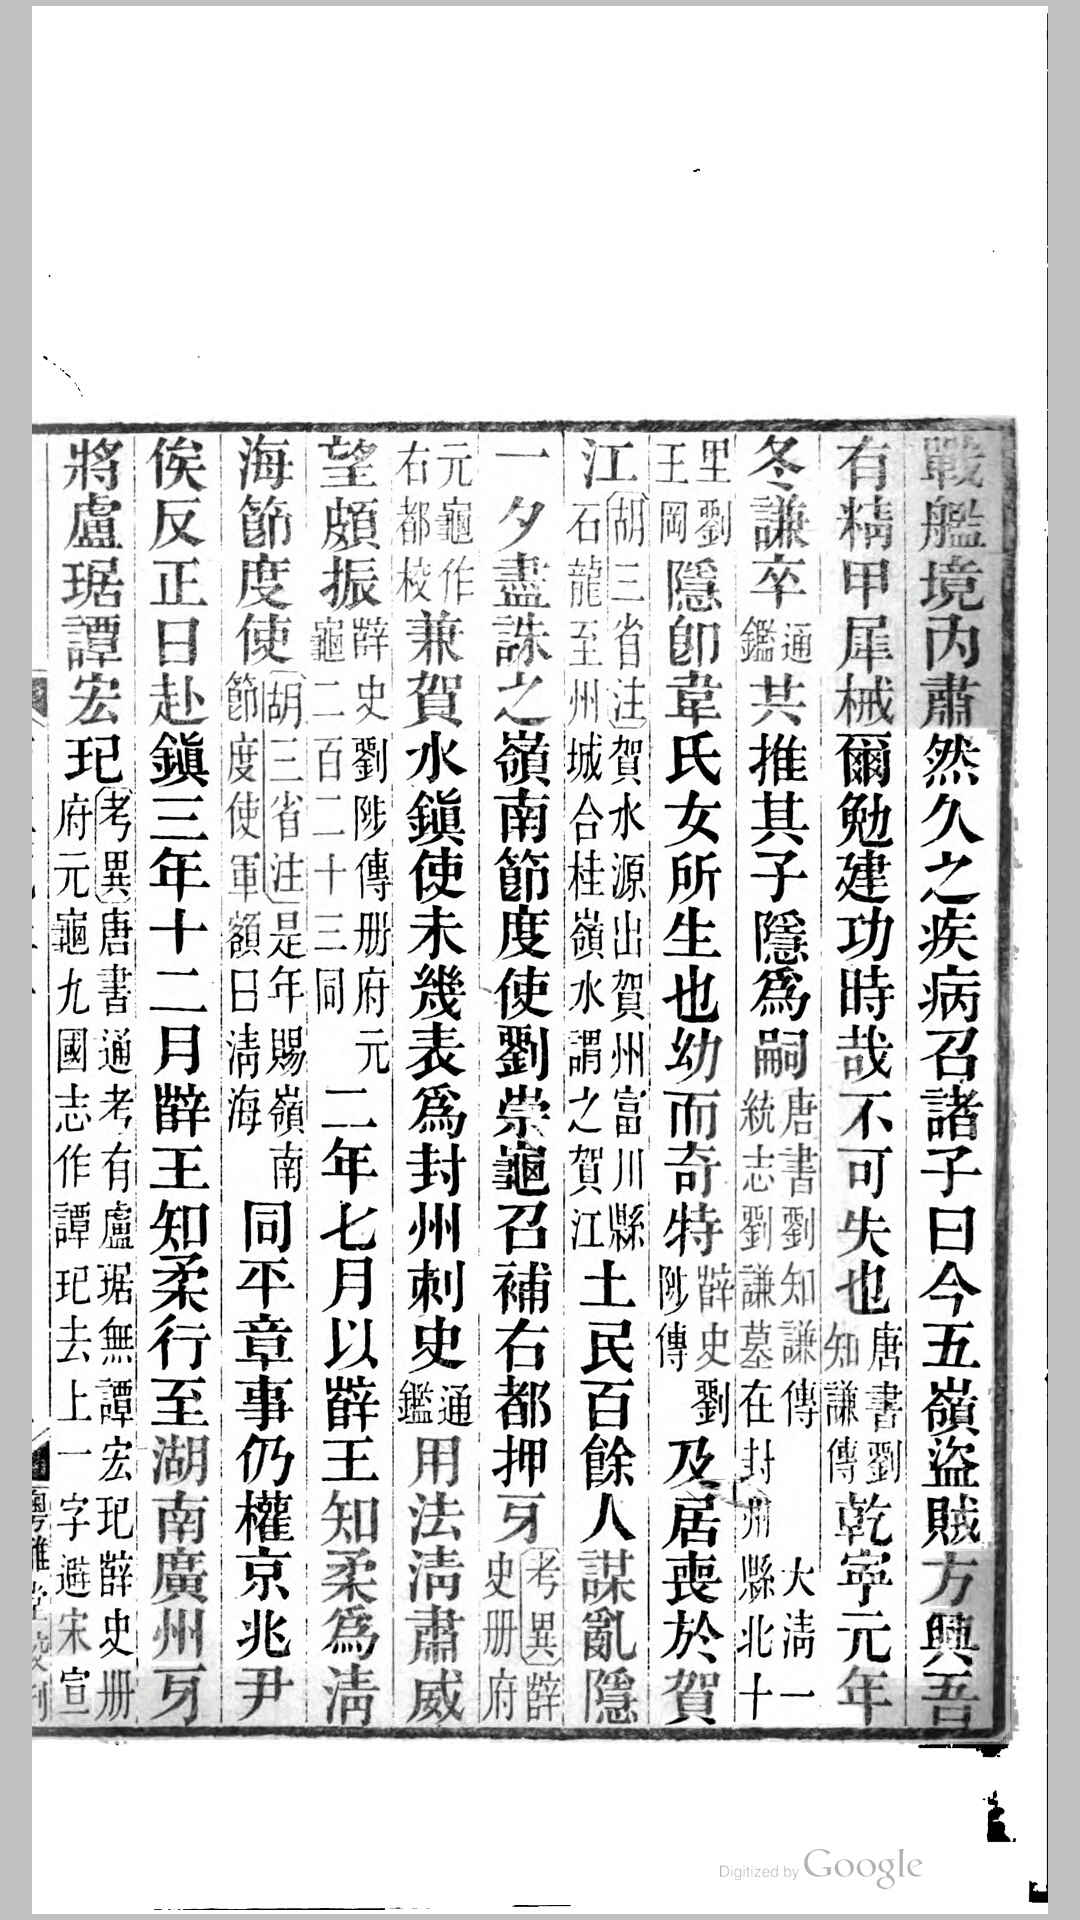 戰艦境內肅然久之疾病召諸子曰今五嶺盜賊方興吾
有精甲犀械爾勉建功時哉不可失也唐書劉知謙傳乾寧元年
冬謙卒通鑑共推其子隱爲嗣唐書劉知謙傳大淸一統志劉謙墓在封州縣北十
里劉王岡隱卽韋氏女所生也幼而奇特薛史劉陟傳及居喪於賀
江胡三省注賀水源出賀州富川縣石龍至州城合桂嶺水謂之賀江土民百餘人謀亂隱
一夕盡誅之嶺南節度使劉崇龜召補右都押牙考異薛史册府
元龜作右都校兼賀水鎭使未幾表爲封州刺史通鑑用法淸肅威
望頗振薛史劉陟傳册府元龜二百二十三同二年七月以薛王知柔爲淸
海節度使胡三省注是年賜嶺南節度使軍額曰淸海同平章事仍權京兆尹
俟反正日赴鎭三年十二月薛王知柔行至湖南廣州牙
將盧琚譚宏玘考異唐書通考有盧琚無譚宏玘薛史册府元龜九國志作譚玘去上一字避宋宣
Digitized by Google